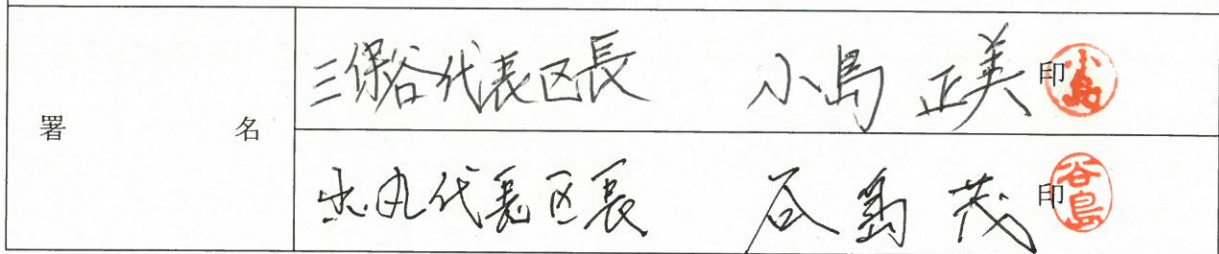 署名
三保谷代表区長 小島 正美 印 小島
出丸代表区長 谷島 茂 印 谷島